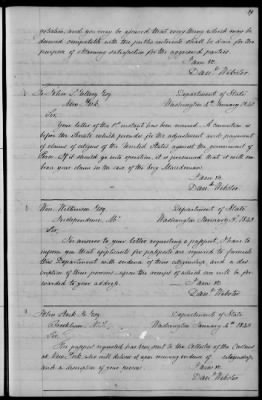 notation, and you may be assured that every thing which may be
deemed compatible with the public interests shall be done for the
purpose of obtaining satisfaction for the aggrieved parties
I am &c
Danl Webster
Esq Department of State
New York. Washington January 1843
Sir,
Your letter of the instant has been received. A convention is
before the Senate which provides for the adjustment and payment
of claims of citizens of the United States against the government of
. If it should go into operation, it is presumed that it will em-
brace your claim in the case of the brig
I am &c
Danl Webster
Wm. Wilkinson Esq Department of State
Independence, Mo Washington January 1843
Sir,
In answer to your letter requesting a passport, I have to
inform you that applicants for passports are required to furnish
this Department with evidence of their citizenship, and a des
cription of their persons, upon the receipt of which one will be for
warded to your address. I am &c
Danl Webster
John Esq Department of State
Brooklyn N.Y. Washington January 1843
Sir
The passport requested has been sent to the Collector of the Customs
at New York, who will deliver it upon receiving evidence of citizenship
and a description of your person. I am &c
Danl Webster